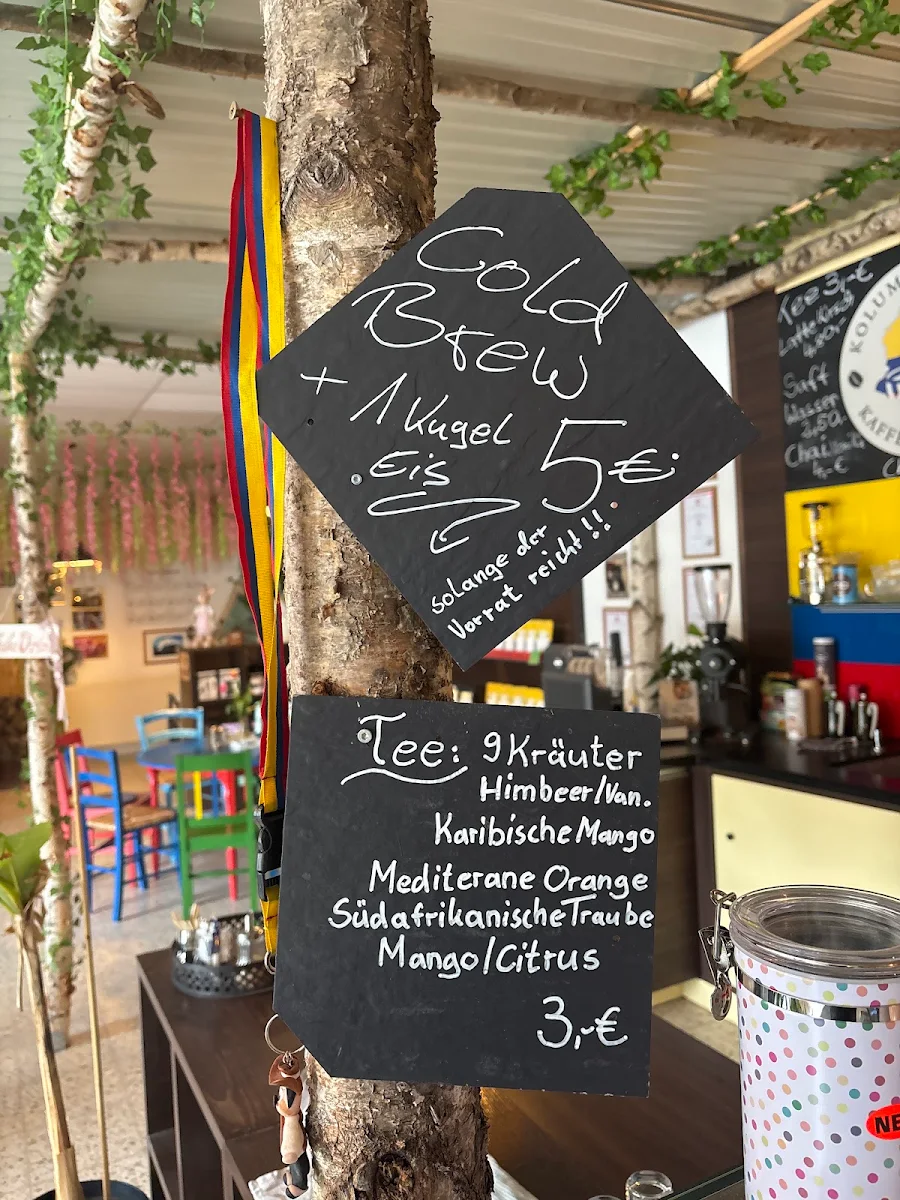 Cold
Brew
+ 1 Kugel
Eis 5€
solange der
Vorrat reicht!!
Tee: 9Kräuter
Himbeer/Van.
Karibische Mango
Mediterane Orange
Südafrikanische Traube
Mango/Citrus
3,-€
Tee 3,-€
Saft
Wasser
2,50
Chai
4,-€
KOLUM
KAFFE
NE